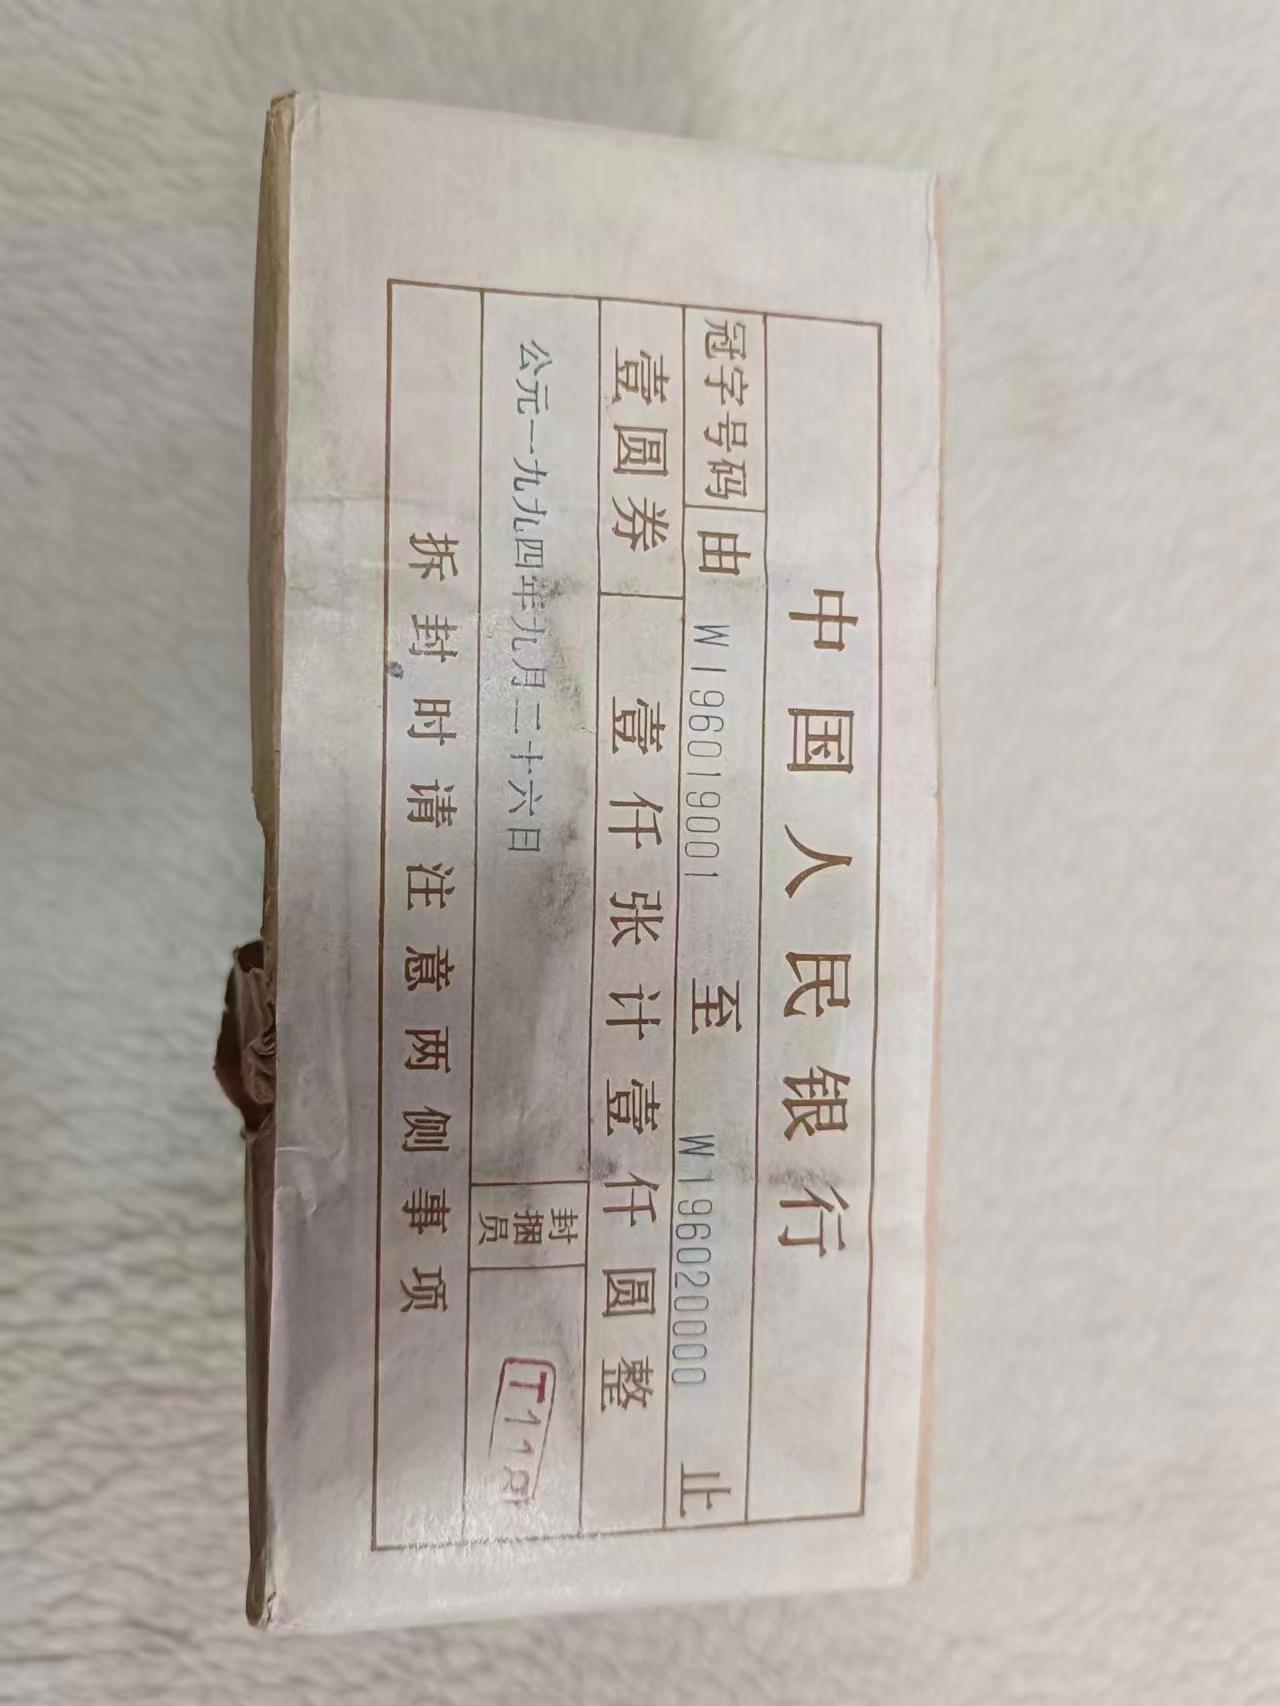 中国人民银行
冠字号码 由 W196019001 至 W196020000 止
壹圆券 壹仟张计壹仟圆整
公元一九九四年九月二十六日 封捆员 T118
拆封时请注意两侧事项